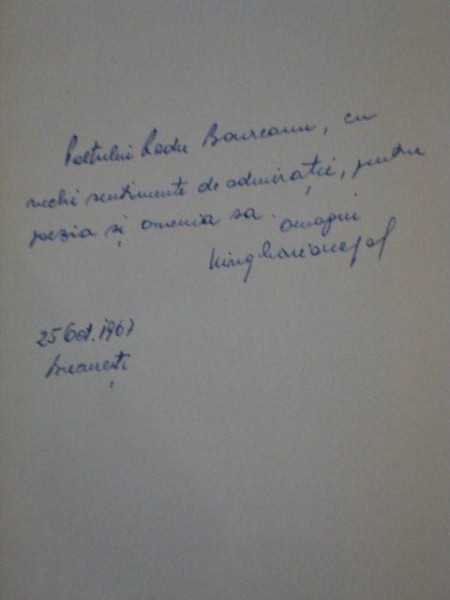 Poetului Radu Boureanu, cu
vechi sentimente de admirație, pentru
poezia și omenia sa. omagiu
25 Oct. 1967
București